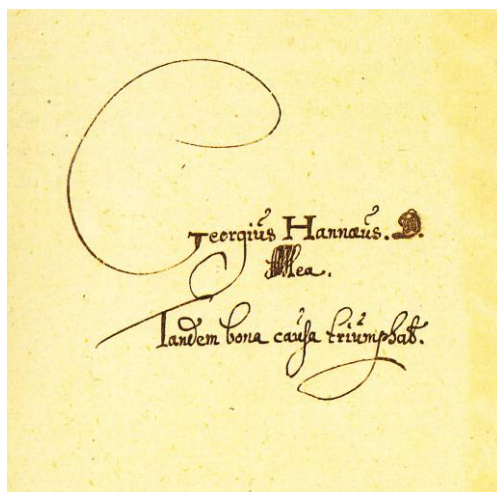 Georgius Hannæus. D.
Mea.
Tandem bona causa triumphat.